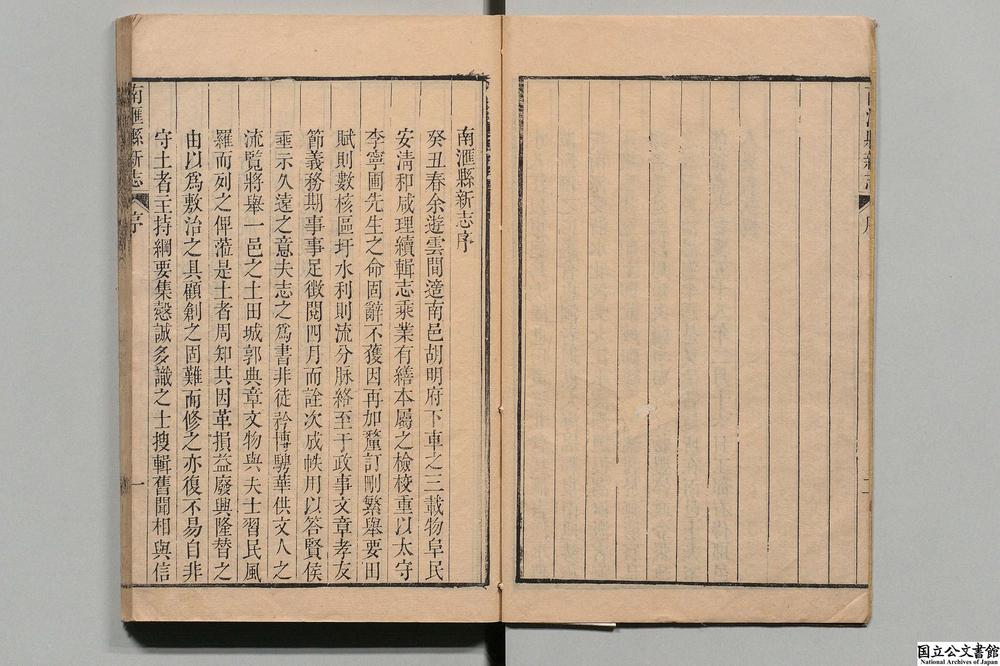 南滙縣新志序
癸丑春余遊雲間適南邑胡明府下車之三載物阜民
安淸和咸理續輯志乘業有繕本屬之檢校重以太守
李寧圃先生之命固辭不獲因再加釐訂刪繁舉要田
賦則數核區圩水利則流分脉絡至于政事文章孝友
節義務期事事足徵閱四月而詮次成帙用以答賢侯
垂示久遠之意夫志之爲書非徒矜博騁華供文人之
流覽將舉一邑之土田城郭典章文物與夫士習民風
羅而列之俾蒞是土者周知其因革損益廢興隆替之
由以爲敷治之具顧創之固難而修之亦復不易自非
守土者主持綱要集慤誠多識之士搜輯舊聞相與信
南滙縣新志
序
一
國立公文書館
National Archives of Japan